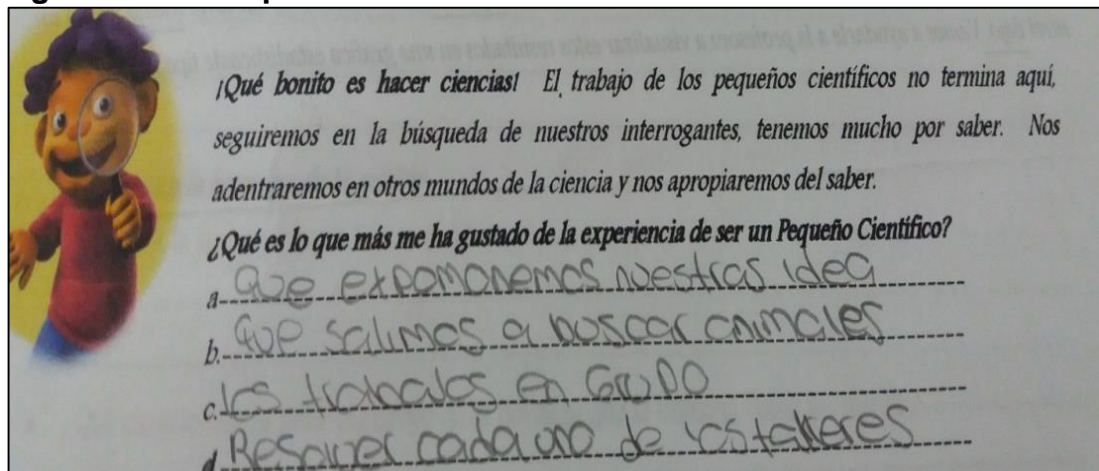 ¡Qué bonito es hacer ciencias! El trabajo de los pequeños científicos no termina aquí,
seguiremos en la búsqueda de nuestros interrogantes, tenemos mucho por saber. Nos
adentraremos en otros mundos de la ciencia y nos apropiaremos del saber.
¿Qué es lo que más me ha gustado de la experiencia de ser un Pequeño Científico?
a Que expomonemos nuestras idea
b. Que salimos a buscar animales
c. los trabalos en Grupo
d Resolver cada uno de los talleres